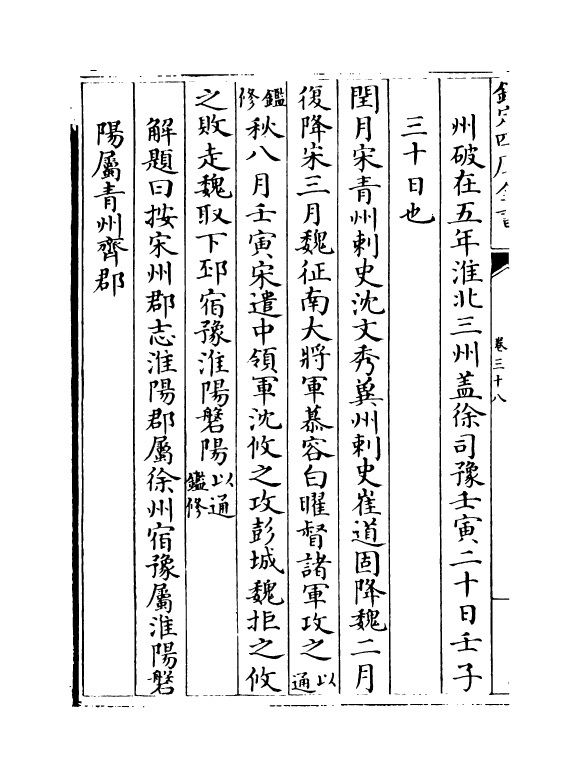 欽定四庫全書
卷三十八
州破在五年淮北三州蓋徐司豫壬寅二十日壬子
三十日也
閏月宋青州刺史沈文秀冀州刺史崔道固降魏二月
復降宋三月魏征南大將軍慕容白曜督諸軍攻之以通
鑑修秋八月壬寅宋遣中領軍沈攸之攻彭城魏拒之攸
之敗走魏取下邳宿豫淮陽磐陽以通鑑修
解題曰按宋州郡志淮陽郡屬徐州宿豫屬淮陽磐
陽屬青州齊郡